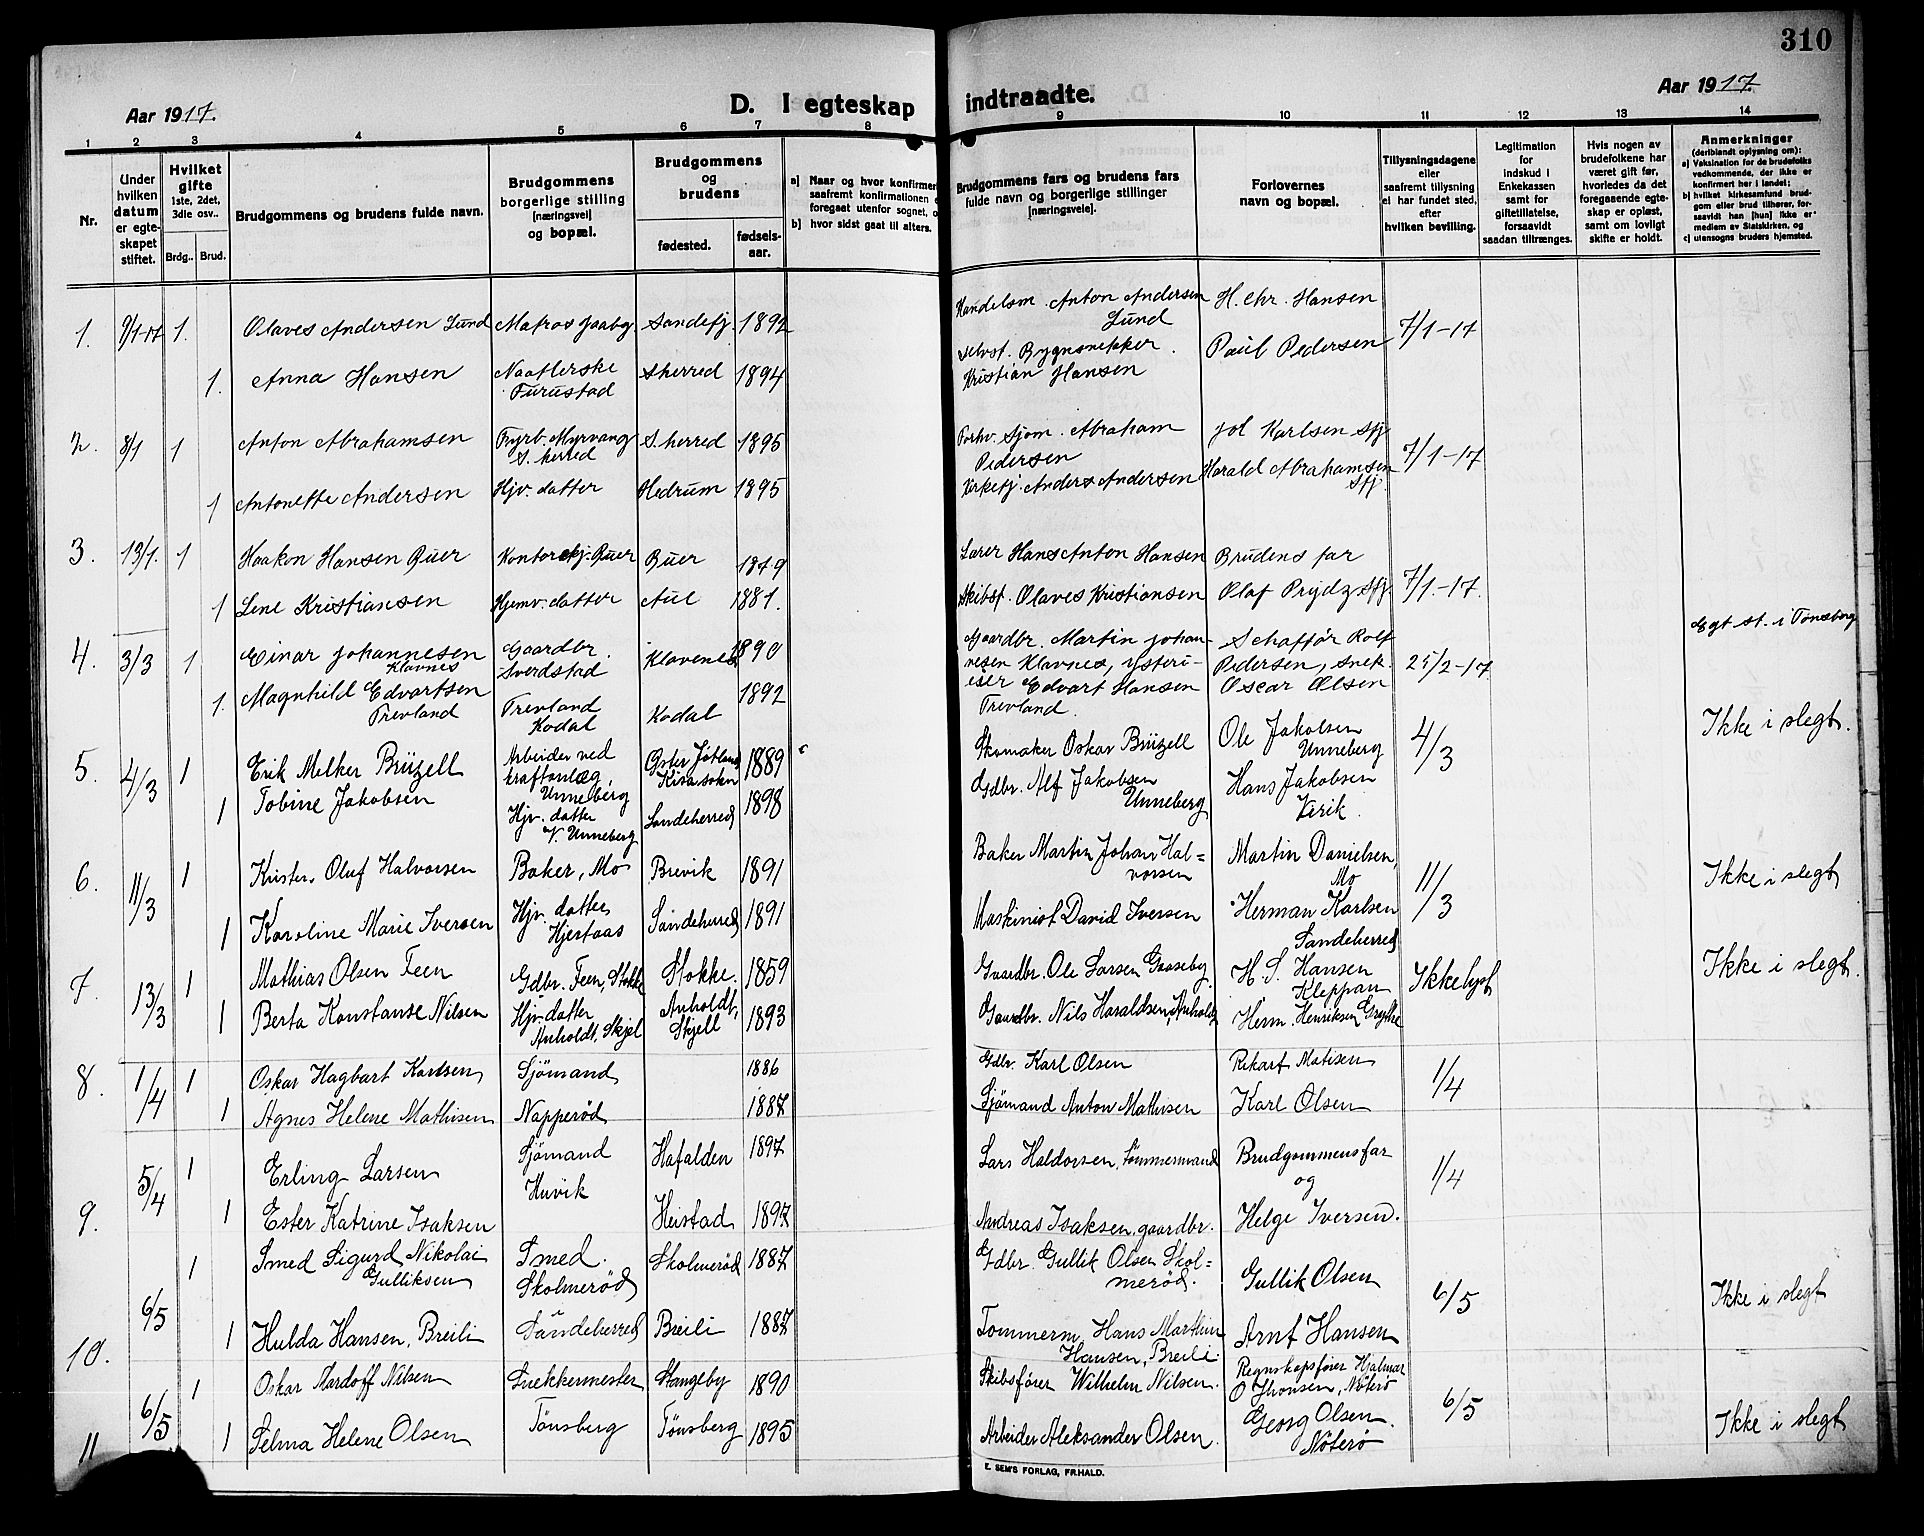 310
Aar 1917.
D. I egteskap indtraadte.
Aar 1917.
1 2 3 4 5 6 7 8 9 10 11 12 13 14
Nr.
Under hvilken datum er egteskapet stiftet.
Hvilket gifte 1ste, 2det, 3die osv..
Brdg.. Brud.
Brudgommens og brudens fulde navn.
Brudgommens borgerlige stilling [næringsvei] og bopæl.
Brudgommens og brudens
fødested. fødsels-aar.
a] Naar og hvor konfirmer
saafremt konfirmationen e
foregaat utenfor sognet, o
b] hvor sidst gaat til alters.
Brudgommens fars og brudens fars fulde navn og borgerlige stillinger [næringsvei].
Forlovernes navn og bopæl.
Tillysningsdagene eller saafremt tillysning ei har fundet sted, efter hvilken bevilling.
Legitimation for indskud i Enkekassen samt for giftetillatelse, forsaavidt saadan tiltrænges.
Hvis nogen av brudefolkene har været gift før, hvorledes da det foregaaende egteskap er opløst, samt om lovligt skifte er holdt.
Anmerkninger (deriblandt oplysning om): a) Vaksination for de brudefolks vedkommende, der ikke er konfirmert her i landet; b) hvilket kirkesamfund brudgom eller brud tilhører, forsaavidt han [hun] ikke er medlem av Statskirken, og c) utensogns bruders hjemsted.
1. 7/1-17 1. Olaves Andersen Lund Matros Jaaberg Sandefj. 1892 Handelsm. Anton Andersen Lund H. Chr. Hansen 7/1-17
1. Anna Hansen Furustad Sherred 1894 selvst. Bygnsnekker Kristian Hansen Paul Pedersen
2. 8/1 1 Anton Abrahamsen Fyrb. Myrvang S. herred S. herred 1895 Forhv. Sjøm. Abraham Pedersen Joh Karlsen Sfj 7/1-17
1 Antonette Andersen Hjv. datter Hedrum 1895 Kirketj. Anders Andersen Harald Abrahamsen Sfj.
3. 13/1. 1 Haakon Hansen Buer Kontorchj. Buer Buer 1879 Lærer Hans Anton Hansen Brudens far 7/1.-17.
1 Lene Kristiansen Hjemv. datter Aul 1881. Skibsf. Olaves Kristiansen Olaf Prydz Sfj.
4. 3/3 1 Einar Johannesen Klavnes Gaardbr. Sverdstad Klavenes 1890 Gaardbr. Martin Johannesen Klavnes, Schaffør Rolf Pedersen, snek. 25/2-17 Egt st. i Tønsberg
1. Magnhild Edvartsen Trevland Trevland Kodal Kodal 1892 Edvart Hansen Trevland. Oscar Olsen
5. 4/3 1 Erik Melker Brüzell Arbeider ved kraftanlæg, Unneberg Øster Jötland Kisa sokn 1889 c Skomaker Oskar Brüzell Ole Jakobsen Unneberg 4/3 Ikke i slegt.
1 Tobine Jakobsen Hjv. datter V. Unneberg Sandeherred 1898 Gdbr. Alf Jakobsen Unneberg Hans Jakobsen Virik.
6. 11/3 1 Krister. Oluf Halvorsen Baker, Mo Brevik 1891 Baker Martin Johan Halvorsen Martin Danielsen, Mo 11/3 Ikke i slegt
1 Karoline Marie Iversen Hjv. datter Hjertaas Sandeherred 1891 Maskinist David Iversen Herman Karlsen Sandeherred
7. 13/3 1 Mathias Olsen Feen Gdbr. Feen, Stokke Stokke. 1859 Gaardbr. Ole Larsen Gaaseby. H. S. Hansen Kleppan Ikke lyst Ikke i slegt.
1 Berta Konstanse Nilsen Hjv. datter Anholdt, Skjel Anholdt, Skjell 1893 Gaardbr. Nils Haraldsen, Anholdt Herm. Henriksen Grytte
8. 1/4 1 Oskar Hagbart Karlsen Sjömand 1886 Gdbr. Karl Olsen Rikart Matisen 1/4
1 Agnes Helene Mathisen Napperöd 1887 Sjömand Anton Mathisen Karl Olsen
9. 5/4 1 Erling Larsen Sjömand Huvik Hafalden 1897 Lars Haldorsen, Tömmermand Brudgommens far og 1/4
1 Ester Katrine Isaksen Heistad 1897 Andreas Isaksen, gaardbr. Helge Iversen.
10. 6/5 1 Smed Sigurd Nikolai Gulliksen Smed. Skolmeröd Skolmeröd 1887 Gdbr. Gullik Olsen Skolmeröd. Gullik Olsen 6/5 Ikke i slegt
1 Hulda Hansen, Breili Sandeherred Breili 1887 Tømmerm. Hans Marthin Hansen, Breili. Arnt Hansen
11 6/5 1 Oskar Nardoff Nilsen Snekkermester Stangeby 1890 Skibsfører Wilhelm Nilsen. Regnskapsfører Hjalmar O Thorsen, Nøterø 6/5 Ikke i slegt
1 Selma Helene Olsen Tønsberg Tønsberg 1895 Arbeider Aleksander Olsen. Georg Olsen. Nöterö
E. SEM'S FORLAG, FR.HALD.